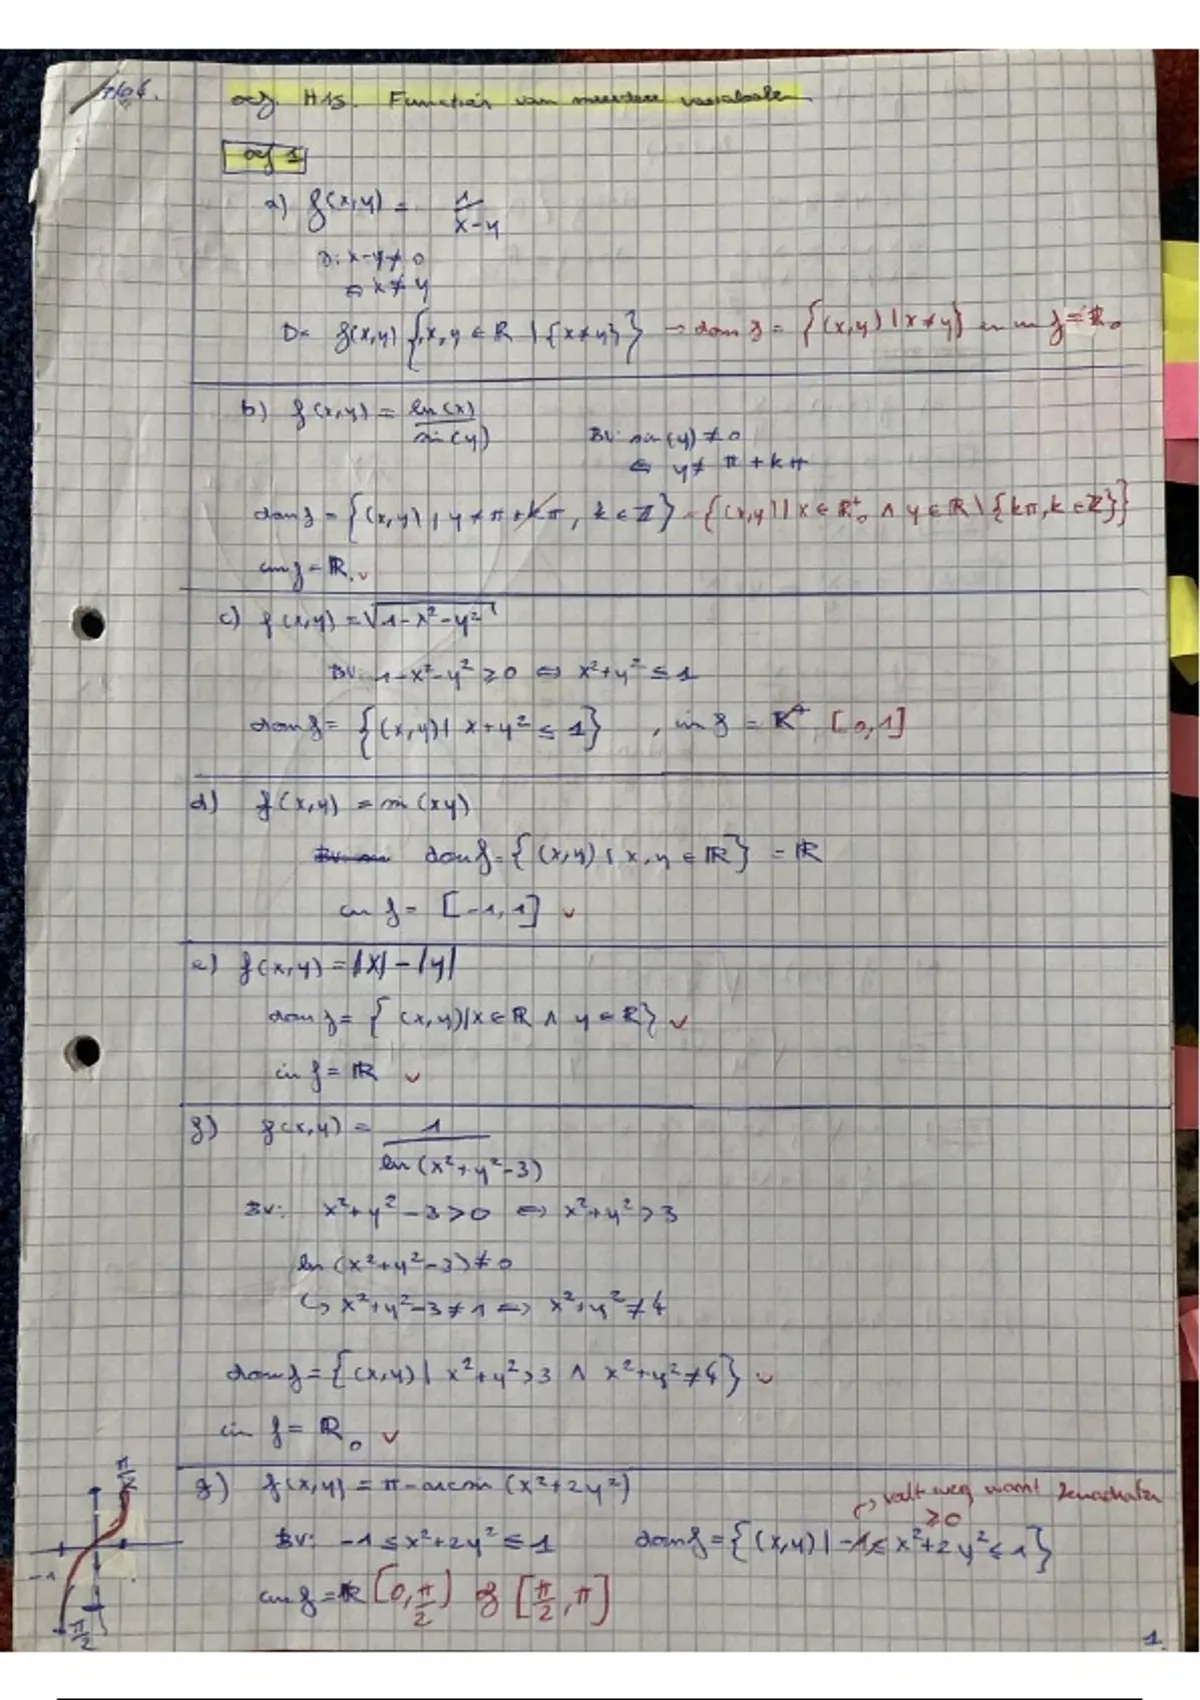 oef. H15. Functies van meerdere variabelen
oef 1
a) f(x,y) = 1/(x-y)
D: x-y≠0
⇔ x≠y
D= f(x,y) {x,y ∈ ℝ | {x≠y}} → dom f = {(x,y) | x≠y} en im f = ℝ₀
b) f(x,y) = ln(x)/sin(y)
BV: sin(y) ≠ 0
⇔ y ≠ π + kπ
dom f = {(x,y) | y ≠ π + kπ, k ∈ ℤ} = {(x,y) | x ∈ ℝ₀⁺ ∧ y ∈ ℝ \ {kπ, k ∈ ℤ}}
im f = ℝ. ✓
c) f(x,y) = √(1-x²-y²)
BV: 1-x²-y² ≥ 0 ⇔ x²+y² ≤ 1
dom f = {(x,y) | x+y² ≤ 1} , im f = ℝ⁺ [0,1]
d) f(x,y) = sin(xy)
dom f = {(x,y) | x,y ∈ ℝ} = ℝ
im f = [-1,1] ✓
e) f(x,y) = |x| - |y|
dom f = {(x,y) | x ∈ ℝ ∧ y ∈ ℝ} ✓
im f = ℝ ✓
f) f(x,y) = 1/ln(x²+y²-3)
BV: x²+y²-3>0 ⇔ x²+y²>3
ln(x²+y²-3) ≠ 0
↳ x²+y²-3 ≠ 1 ⇔ x²+y² ≠ 4
dom f = {(x,y) | x²+y²>3 ∧ x²+y² ≠ 4} ✓
im f = ℝ₀ ✓
g) f(x,y) = π - arcsin(x²+2y²)
valt weg want
≥0
BV: -1 ≤ x²+2y² ≤ 1 dom f = {(x,y) | -1 ≤ x²+2y² ≤ 1}
im f = ℝ [0, π/2) of [π/2, π]
π/2
-1
-π/2
1.